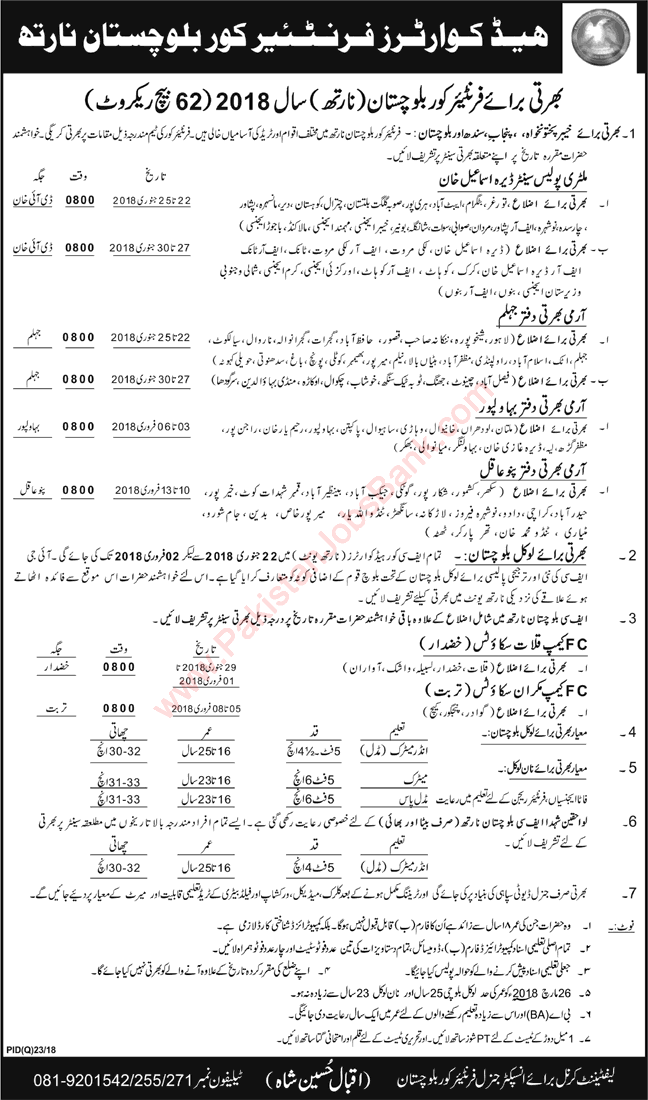 ہیڈ کوارٹرز فرنٹیئر کور بلوچستان نارتھ
بھرتی برائے فرنٹیئر کور بلوچستان (نارتھ) سال 2018 (62 بیچ ریکروٹ)
1- بھرتی برائے خیبر پختونخواہ، پنجاب، سندھ اور بلوچستان :- فرنٹیئر کور بلوچستان نارتھ میں مختلف اقوام اور ٹریڈ کی آسامیاں خالی ہیں۔ فرنٹیئر کور کی ٹیم مندرجہ ذیل مقامات پر بھرتی کریگی۔ خواہشمند
حضرات مقررہ تاریخ پر اپنے متعلقہ بھرتی سینٹر پر تشریف لائیں۔
ملٹری پولیس سینٹر ڈیرہ اسماعیل خان تاریخ وقت جگہ
ا۔ بھرتی برائے اضلاع (تورغر، بٹگرام، ایبٹ آباد، ہری پور، صوبہ گلگت بلتستان، چترال، کوہستان، دیر، مانسہرہ، پشاور 22 تا 25 جنوری 2018 0800 ڈی آئی خان
، چارسدہ، نوشہرہ، ایف آر پشاور، مردان، صوابی، سوات، شانگلہ، بونیر، خیبر ایجنسی، مہمند ایجنسی، مالاکنڈ، باجوڑ ایجنسی)
ب۔ بھرتی برائے اضلاع (ڈیرہ اسماعیل خان، لکی مروت، ایف آر لکی مروت، ٹانک، ایف آر ٹانک 27 تا 30 جنوری 2018 0800 ڈی آئی خان
ایف آر ڈیرہ اسماعیل خان، کرک، کوہاٹ، ایف آر کوہاٹ، اورکزئی ایجنسی، کرم ایجنسی، شمالی و جنوبی
وزیرستان ایجنسی، بنوں، ایف آر بنوں)
آرمی بھرتی دفتر جہلم
ا۔ بھرتی برائے اضلاع (لاہور، شیخوپورہ، ننکانہ صاحب، قصور، حافظ آباد، گجرات، گجرانوالہ، ناروال، سیالکوٹ، 22 تا 25 جنوری 2018 0800 جہلم
جہلم، اٹک، اسلام آباد، راولپنڈی، مظفر آباد، ہٹیاں بالا، نیلم، میر پور، بھمبر، کوٹلی، پونچھ، باغ، سدھنوتی، حویلی کہوٹہ)
ب۔ بھرتی برائے اضلاع (فیصل آباد، چنیوٹ، جھنگ، ٹوبہ ٹیک سنگھ، خوشاب، چکوال، اوکاڑہ، منڈی بہاؤالدین، سرگودھا) 27 تا 30 جنوری 2018 0800 جہلم
آرمی بھرتی دفتر بہاولپور
ا۔ بھرتی برائے اضلاع (ملتان، لودھراں، خانیوال، وہاڑی، ساہیوال، پاکپتن، بہاولپور، رحیم یار خان، راجن پور، 03 تا 06 فروری 2018 0800 بہاولپور
مظفر گڑھ، لیہ، ڈیرہ غازی خان، بہاولنگر، میانوالی، بھکر)
آرمی بھرتی دفتر پنوعاقل
ا۔ بھرتی برائے اضلاع (سکھر، کشمور، شکارپور، گھوٹکی، جیکب آباد، بینظیر آباد، قمبر شہداد کوٹ، خیرپور، 10 تا 13 فروری 2018 0800 پنوعاقل
حیدرآباد، کراچی، دادو، نوشہرہ فیروز، لاڑکانہ، سانگھڑ، ٹنڈواللہ یار، میرپور خاص، بدین، جام شورو،
مٹیاری، ٹنڈو محمد خان، تھر پارکر، ٹھٹہ)
2- بھرتی برائے لوکل بلوچستان :- تمام ایف سی کور ہیڈ کوارٹرز (نارتھ یونٹ) میں 22 جنوری 2018 سے لیکر 02 فروری 2018 تک کی جائے گی۔ آئی جی
ایف سی کی نئی اور ترجیحی پالیسی برائے لوکل بلوچستان کے تحت بلوچ قوم کے اضافی کوٹہ کو متعارف کرایا گیا ہے۔ اس لئے خواہشمند حضرات اس موقع سے فائدہ اٹھاتے
ہوئے علاقے کی نزدیکی نارتھ یونٹ میں بھرتی کیلئے تشریف لائیں۔
3- ایف سی بلوچستان نارتھ میں شامل اضلاع کے علاوہ باقی خواہشمند حضرات مقررہ تاریخ پر درجہ ذیل بھرتی سینٹر پر تشریف لائیں۔
FC کیمپ قلات سکاؤٹس (خضدار) تاریخ وقت جگہ
ا۔ بھرتی برائے اضلاع (قلات، خضدار، لسبیلہ، واشک، آواران) 29 جنوری 2018 تا 0800 خضدار
01 فروری 2018
FC کیمپ مکران سکاؤٹس (تربت)
ا۔ بھرتی برائے اضلاع (گوادر، پنجگور، کیچ) 05 تا 08 فروری 2018 0800 تربت
4- معیار بھرتی برائے لوکل بلوچستان:- تعلیم قد عمر چھاتی
انڈر میٹرک (مڈل) 5 فٹ-4½ انچ 16 تا 25 سال 30-32 انچ
5- معیار بھرتی برائے نان لوکل:- میٹرک 5 فٹ 6 انچ 16 تا 23 سال 31-33 انچ
فاٹا ایجنسیاں، فرنٹیئر ریجن کے لئے تعلیم میں رعایت مڈل پاس 5 فٹ 6 انچ 16 تا 23 سال 31-33 انچ
6- لواحقین شہدا ایف سی بلوچستان نارتھ (صرف بیٹا اور بھائی) کے لئے خصوصی رعایت رکھی گئی ہے۔ ایسے تمام افراد مندرجہ بالا تاریخوں میں مطلقہ سینٹر پر بھرتی
کے لئے تشریف لائیں۔ تعلیم قد عمر چھاتی
انڈر میٹرک (مڈل) 5 فٹ 4 انچ 16 تا 25 سال 30-32 انچ
7- بھرتی صرف جنرل ڈیوٹی سپاہی کی بنیاد پر کی جائے گی اور ٹریننگ مکمل ہونے کے بعد کلرک، میڈیکل، ورکشاپ اور فیلڈ بیٹری کے ٹریڈ تعلیمی قابلیت اور میرٹ کے معیار پر دیئے جائیں گے۔
نوٹ:- ۱۔ وہ حضرات جن کی عمر ۱۸ سال سے زائد ہے ان کا فارم (ب) قابل قبول نہیں ہوگا۔ بلکہ کمپیوٹرائزڈ شناختی کارڈ لازمی ہے۔
۲۔ تمام اصلی تعلیمی اسناد کمپیوٹرائیزڈ فارم (ب)، ڈومیسائل، تمام دستاویزات کی تین عدد فوٹو سٹیٹ اور چار عدد فوٹو ہمراہ لائیں۔
۳۔ جعلی تعلیمی اسناد پیش کرنے والے کو حوالہ پولیس کیا جائیگا۔ ۴۔ اپنے ضلع کی مقرر کردہ تاریخ کے علاوہ آنے والے کو بھرتی نہیں کیا جائے گا۔
۵۔ 26 مارچ 2018 کو عمر کی حد لوکل بلوچی 25 سال اور نان لوکل 23 سال سے زیادہ نہ ہو۔
۶۔ بی اے (BA) اور اس سے زیادہ تعلیم رکھنے والوں کے لئے عمر میں ایک سال رعایت دی جائیگی۔
۷۔ 1 میل دوڑ کے ٹیسٹ کے لئے PT شوز ساتھ لائیں۔ اور تحریری ٹیسٹ کے لئے قلم اور امتحانی گتا ساتھ لائیں۔
PID(Q)23/18
لیفٹیننٹ کرنل برائے انسپکٹر جنرل فرنٹیئر کور بلوچستان (اقبال حُسین شاہ) ٹیلیفون نمبر 081-9201542/255/271
www.PakistanJobsBank.com